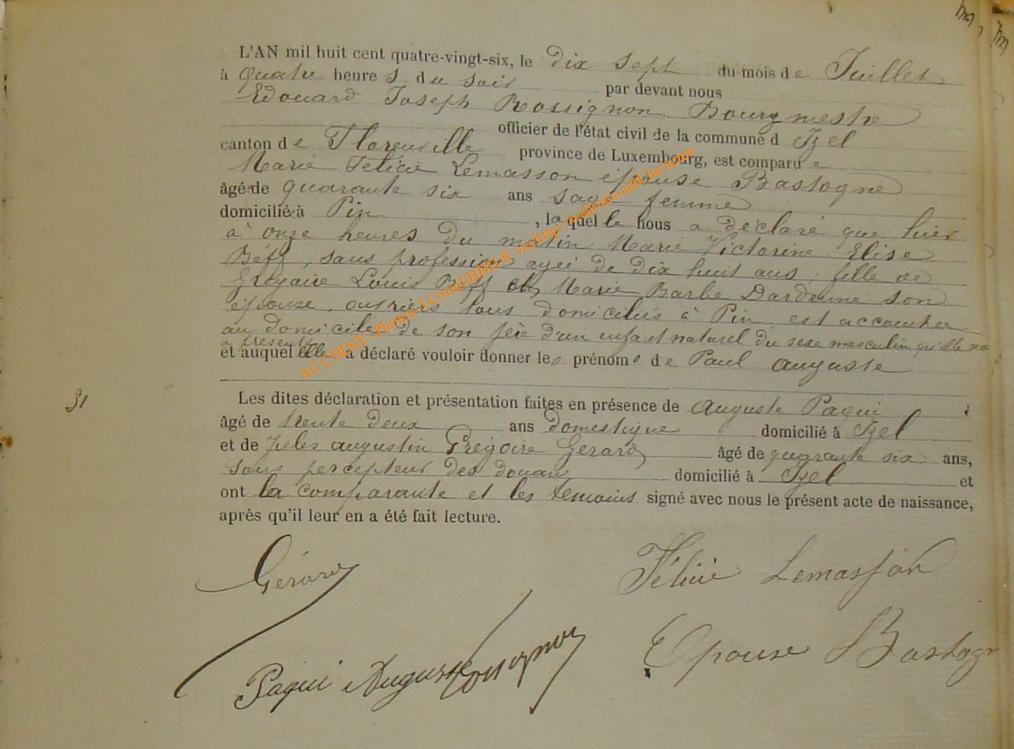 L'AN mil huit cent quatre-vingt-six, le dix sept du mois de Juillet
à quatre heures du soir par devant nous
Edouard Joseph Rossignon Bourgmestre
officier de l'état civil de la commune d Izel
canton de Florenville province de Luxembourg, est comparue
Marie Felicie Lemasson épouse Bastogne
âgé de quarante six ans sage femme
domicilié à Pin , laquelle nous a déclaré que hier
à onze heures du matin Marie Victorine Elise
Beff, sans profession agée de dix huit ans fille de
Grégoire Louis Beff et Marie Barbe Dardenne son
épouse, ouvriers tous domiciliés à Pin est accouchée
au domicile de son père d'un enfant naturel du sexe masculin qu'elle nous
a présenté
et auquel elle a déclaré vouloir donner les prénoms de Paul Auguste
31
Les dites déclaration et présentation faites en présence de Auguste Paqui
âgé de trente deux ans domestique domicilié à Izel
et de Jules Augustin Grégoire Gerard âgé de quarante six ans,
sous percepteur des douanes domicilié à Izel et
ont la comparante et les témoins signé avec nous le présent acte de naissance,
après qu'il leur en a été fait lecture.
Gérard
Félicie Lemasson
Paqui Auguste Rossignon
Epouse Bastogn